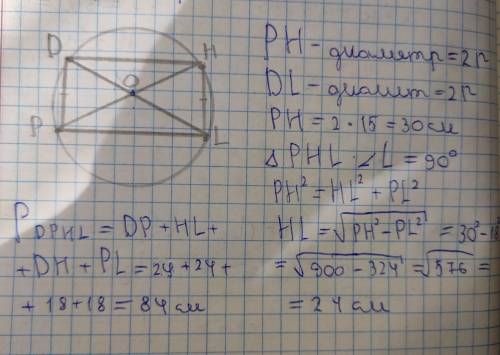 D
H
O
P
L
PH – диаметр = 2r
DL – диамит = 2r
PH = 2 · 15 = 30 см
△ PHL : ∠L = 90°
PH² = HL² + PL²
HL = √PH² – PL² = 30² – 18
= √900 – 324 = √576 =
= 24 см
P DPHL = DP + HL +
+ DH + PL = 24 + 24 +
+ 18 + 18 = 84 см